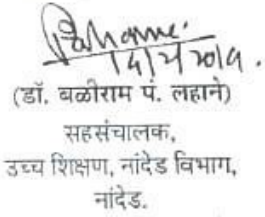 (डॉ. बळीराम पं. लहाने)
सहसंचालक,
उच्च शिक्षण, नांदेड विभाग,
नांदेड.